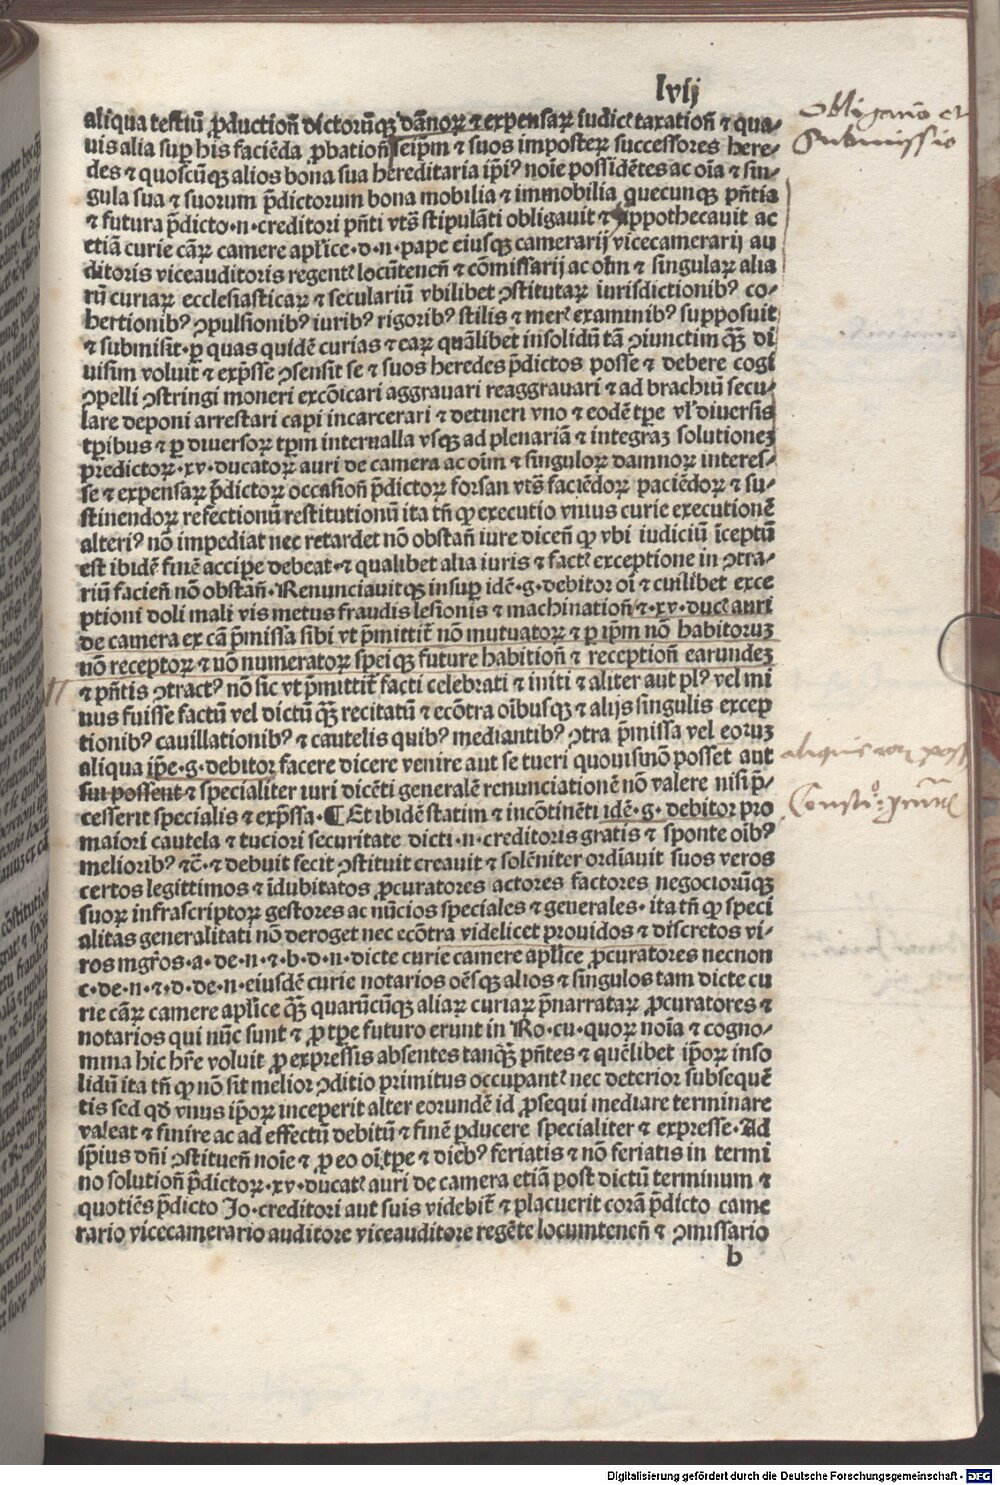 lvij
Obligatio et
Submissio
aliqua testiū ꝓductioñ dictorūqꝫ dānoꝝ ⁊ expensaꝝ iudicꝭ taxatioñ ⁊ qua⸗
uis alia suꝑ his faciēda ꝓbatioñ seip̄m ⁊ suos imposteꝝ successores here⸗
des ⁊ quoscūqꝫ alios bona sua hereditaria ip̄iꝰ noīe possidētes ac oīa ⁊ sin⸗
gula sua ⁊ suorum p̄dictorum bona mobilia ⁊ immobilia quecunqꝫ pn̄tia
⁊ futura p̄dicto·n·creditori pn̄ti vts̄ stipulāti obligauit ⁊ ypothecauit ac
etiā curie cāꝝ camere apl̄ice·d·n·pape eiusqꝫ camerarij vicecamerarij au
ditoris viceauditoris regentꝭ locūtenen̄ ⁊ cōmissarij ac oīm ⁊ singulaꝝ alia
rū curiaꝝ ecclesiasticaꝝ ⁊ seculariū vbilibet ꝯstitutaꝝ iurisdictionibꝰ co⸗
hertionibꝰ ꝯpulsionibꝰ iuribꝰ rigoribꝰ stilis ⁊ merꝭ examinibꝰ supposuit
⁊ submisit·ꝑ quas quidē curias ⁊ eaꝝ quālibet insolidū tā ꝯiunctim qꝫ̄ di
uisim voluit ⁊ exp̄sse ꝯsensit se ⁊ suos heredes p̄dictos posse ⁊ debere cogi
ꝯpelli ꝯstringi moneri excōicari aggrauari reaggrauari ⁊ ad brachiū secu⸗
lare deponi arrestari capi incarcerari ⁊ detineri vno ⁊ eodē tꝑe vl̓ diuersis
tꝑibus ⁊ ꝑ diuersoꝝ tꝑm interualla vsqꝫ ad plenariā ⁊ integraꝫ solutioneꝫ
predictoꝝ·xv·ducatoꝝ auri de camera ac oīm ⁊ singuloꝝ damnoꝝ interes⸗
se ⁊ expensaꝝ p̄dictoꝝ occasioñ p̄dictoꝝ forsan vts̄ faciēdoꝝ paciēdoꝝ ⁊ su⸗
stinendoꝝ refectionū restitutionū ita tn̄ ꝙ executio vnius curie executionē
alteriꝰ nō impediat nec retardet nō obstañ iure diceñ ꝙ vbi iudiciū īceptū
est ibidē finē accipe debeat·⁊ qualibet alia iuris ⁊ factꝭ exceptione in ꝯtra⸗
riū facieñ nō obstañ·Renunciauitqꝫ insuꝑ idē·g·debitor oī ⁊ cuilibet exce
ptioni doli mali vis metus fraudis lesionis ⁊ machinatioñ ⁊·xv·ducꝭ auri
de camera ex cā p̄missa sibi vt p̄mittit̄ nō mutuatoꝝ ⁊ ꝑ ip̄m nō habitoruꝫ
nō receptoꝝ ⁊ nō numeratoꝝ speiqꝫ future habitioñ ⁊ receptioñ earundeꝫ
⁊ pn̄tis ꝯtractꝰ nō sic vt p̄mittit̄ facti celebrati ⁊ initi ⁊ aliter aut plꝰ vel mi
nus fuisse factū vel dictū qꝫ̄ recitatū ⁊ ecōtra oībusqꝫ ⁊ alijs singulis excep
tionibꝰ cauillationibꝰ ⁊ cautelis quibꝰ mediantibꝰ ꝯtra p̄missa vel eoruꝫ
aliqua ip̄e·g·debitor facere dicere venire aut se tueri quouismō posset aut
sui possent ⁊ specialiter iuri dicēti generalē renunciationē nō valere nisi p̄⸗
cesserit specialis ⁊ exp̄ssa·¶Et ibidē statim ⁊ incōtinēti idē·g·debitor pro
maiori cautela ⁊ tuciori securitate dicti·n·creditoris gratis ⁊ sponte oībꝰ
melioribꝰ ⁊c̄·⁊ debuit fecit ꝯstituit creauit ⁊ solēniter ordīauit suos veros
certos legittimos ⁊ īdubitatos ꝓcuratores actores factores negociorūqꝫ
suoꝝ infrascriptoꝝ gestores ac nūcios speciales ⁊ generales·ita tn̄ ꝙ speci
alitas generalitati nō deroget nec ecōtra videlicet prouidos ⁊ discretos vi⸗
ros mgr̄os·a·de·n·⁊·b·d·n·dicte curie camere apl̄ice ꝓcuratores necnon
c·de·n·⁊·d·de·n·eiusdē curie notarios oēsqꝫ alios ⁊ singulos tam dicte cu
rie cāꝝ camere apl̄ice qꝫ̄ quarūcūqꝫ aliaꝝ curiaꝝ p̄narrataꝝ ꝓcuratores ⁊
notarios qui nūc sunt ⁊ ꝓ tꝑe futuro erunt in Ro·cu·quoꝝ noīa ⁊ cogno⸗
mina hic hr̄e voluit ꝓ expressis absentes tanqꝫ̄ pn̄tes ⁊ quēlibet ip̄oꝝ inso
lidū ita tn̄ ꝙ nō sit melior ꝯditio primitus occupantꝭ nec deterior subsequē
tis sed qd̄ vnus ip̄oꝝ inceperit alter eorundē id ꝓsequi mediare terminare
valeat ⁊ finire ac ad effectū debitū ⁊ finē ꝑducere specialiter ⁊ expresse·Ad
ip̄ius dn̄i ꝯstitueñ noīe ⁊ ꝓ eo oī tꝑe ⁊ diebꝰ feriatis ⁊ nō feriatis in termi
no solutioñ p̄dictoꝝ·xv·ducatꝭ auri de camera etiā post dictū terminum ⁊
quotiēs p̄dicto Jo·creditori aut suis videbit̄ ⁊ placuerit corā p̄dicto came
rario vicecamerario auditore viceauditore regēte locumteneñ ⁊ ꝯmissario
b